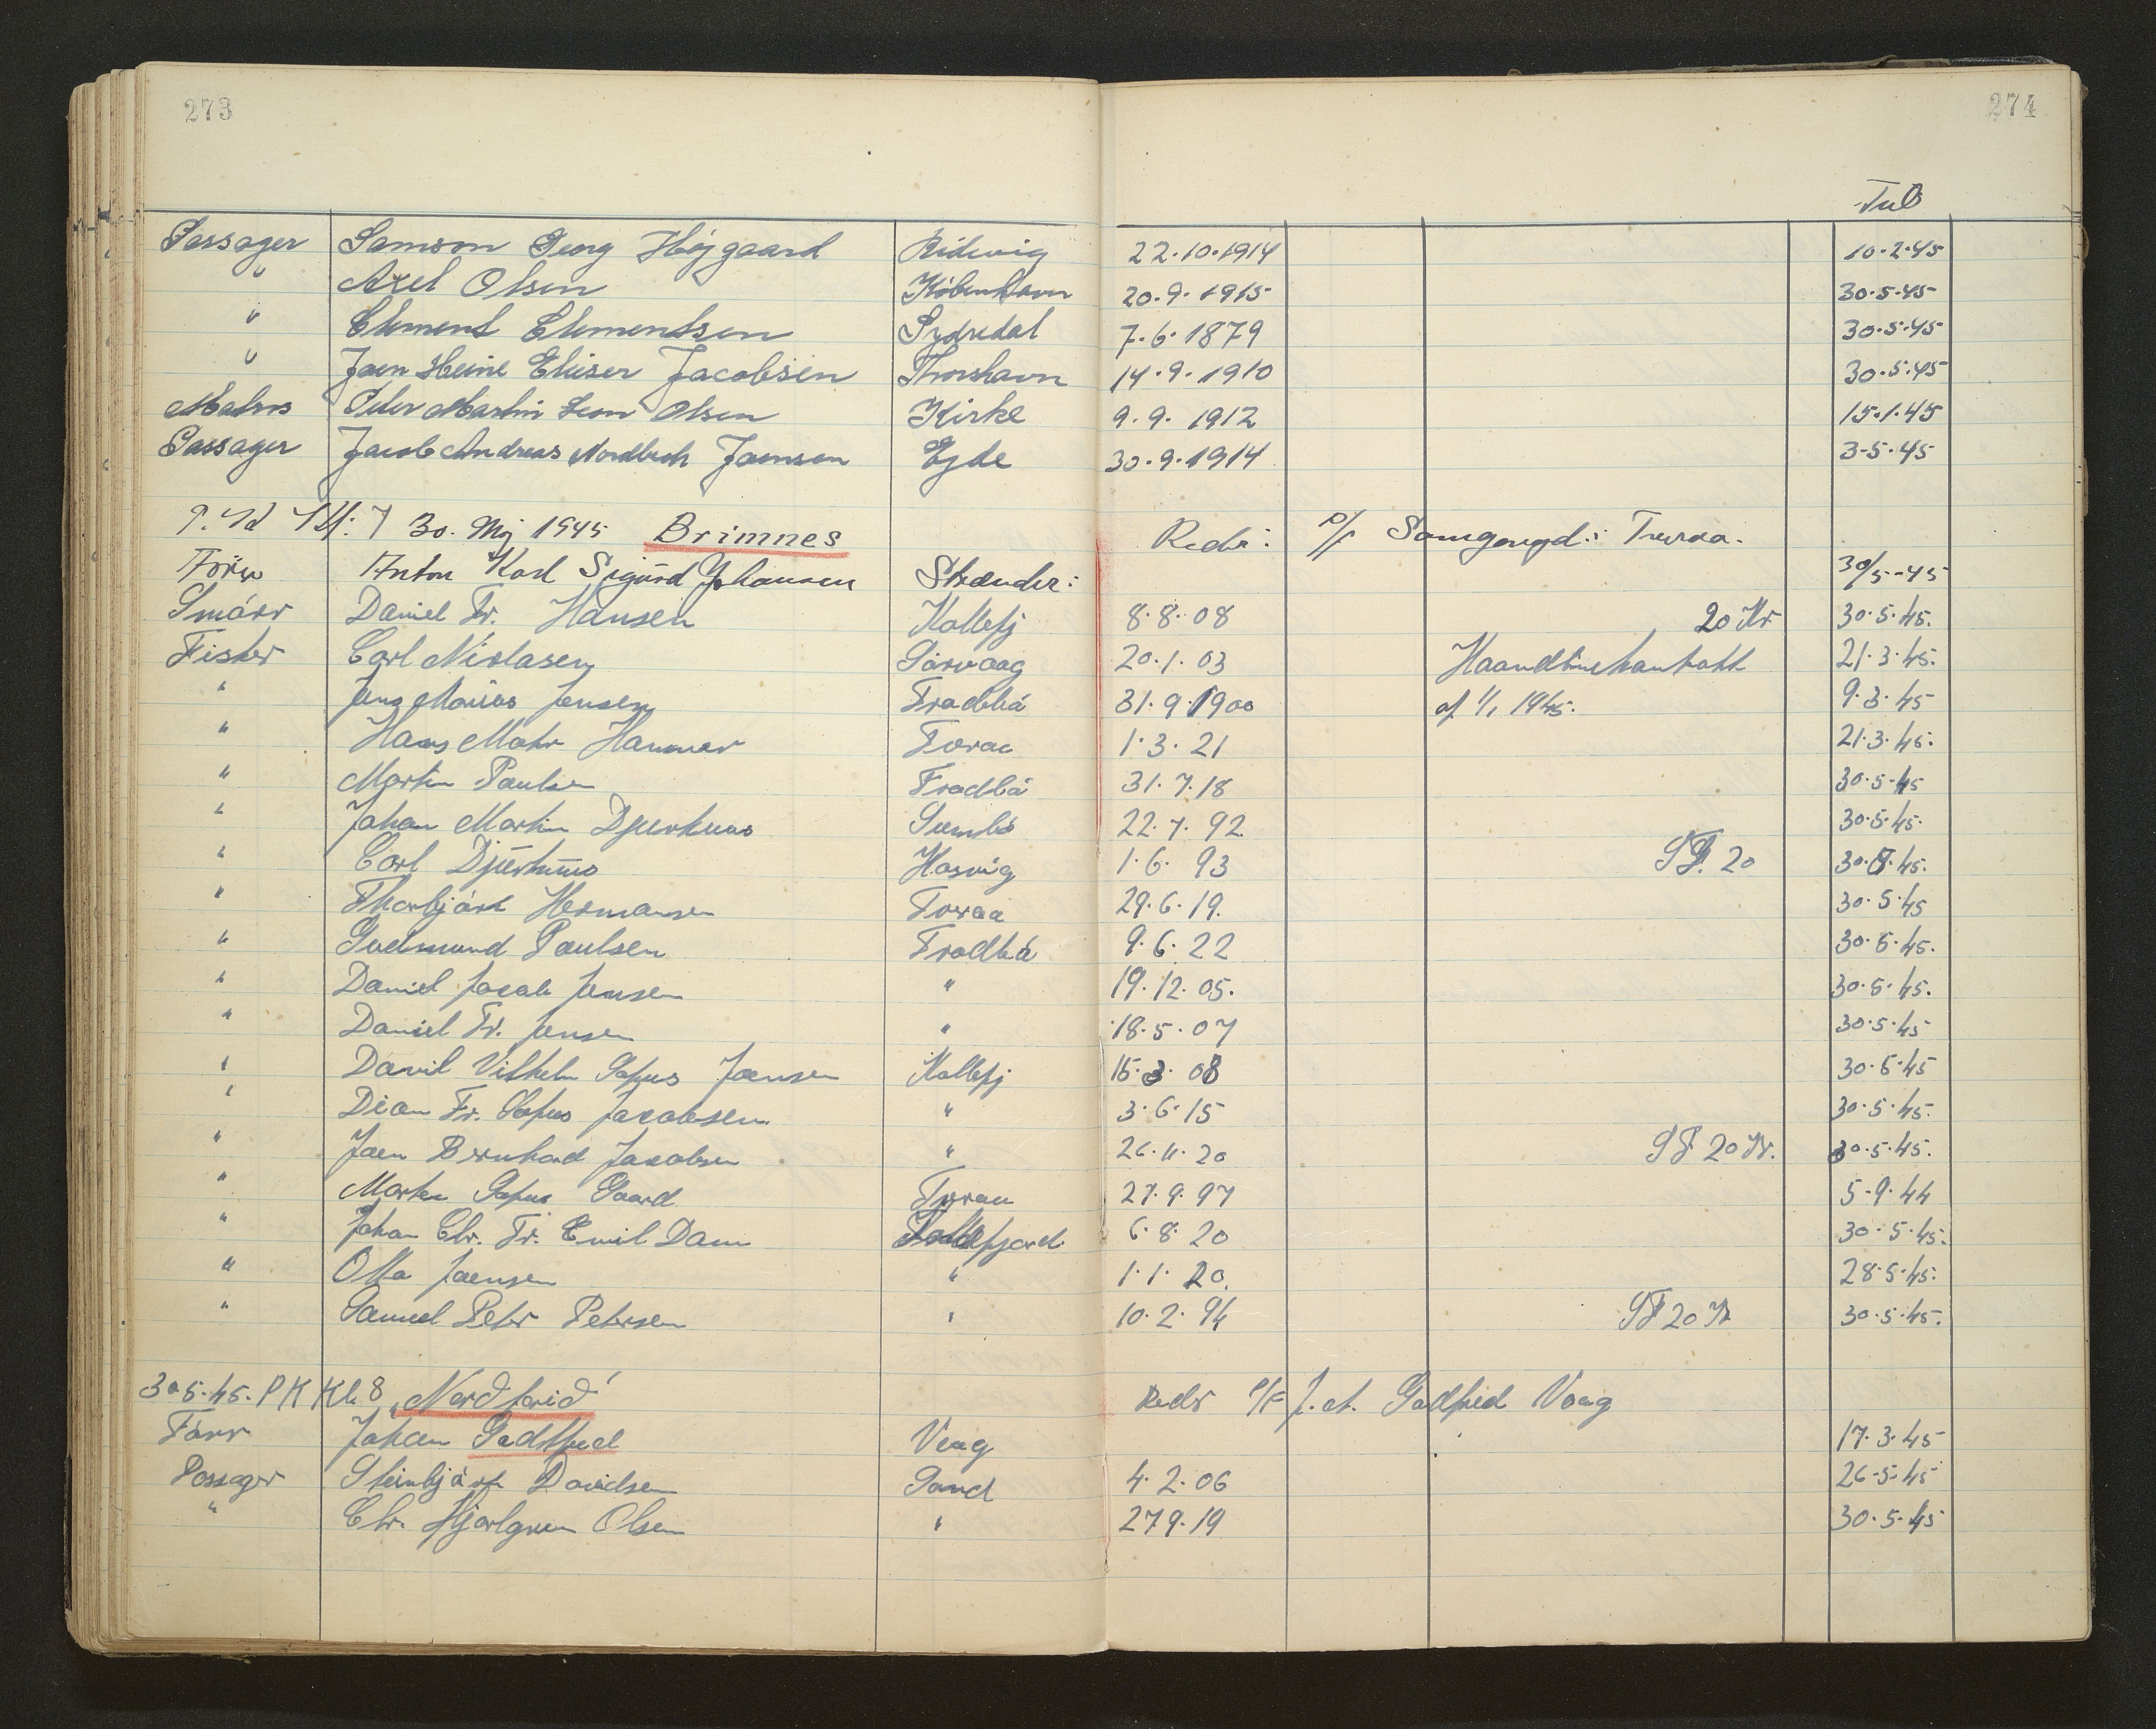 273
274
Tul
Passager Samson Georg Højgaard Ridevig 22.10.1914 10.2.45
" Axel Olsen København 20.9.1915 30.5.45
" Clement Clementsen Sydredal 7.6.1879 30.5.45
" Joen Heine Elieser Jacobsen Thorshavn 14.9.1910 30.5.45
Matros Peter Martin Leon Olsen Kirke 9.9.1912 15.1.45
Passager Jacob Andreas Joensen Ejde 30.9.1914 3.5.45
30. Mj 1945 Brimnes Reder: P/f Tveraa.
Anton Karl Sigurd Johansen Strænder: 30/5-45
Daniel Fr. Hansen Kollefj 8.8.08 20 Kr 30.5.45.
Fisker Carl Niclasen Sørvaag 20.1.03 21.3.45.
" Jens Marius Jensen Frodbiá 31.9.1900 af 1/1 1945. 9.3.45
" Hans Mohr Hammer 1.3.21 21.3.45.
" Martin Paulsen Frodbiá 31.7.18 30.5.45
" Johan Martin Djurhuus Sumbö 22.7.92 30.5.45.
" Carl Djurhuus Hosvig 1.6.93 SF. 20 45.
" Thorbjörn Hermansen 29.6.19. 30.5.45
" Gudmund Paulsen Frodbiá 9.6.22 30.5.45.
" Daniel Jacob Jensen " 19.12.05. 30.5.45.
" Daniel Fr. Jensen " 18.5.07 30.5.45
" David Vilhelm Sofus Joensen Kollefj 15.3.08 30.5.45
" Fr. Sofus Jacobsen " 3.6.15 30.5.45.
" Joen Bernhard Jacobsen " 26.11.20 SF 20 Kr. 30.5.45.
" Morten Sofus Gaard 27.9.97 5.9.44
" Johan Chr. Fr. Emil Dam Kollefjord. 6.8.20 30.5.45.
" Otto Joensen " 1.1.20. 28.5.45.
" Samuel Peter Petersen " 10.2.94 SF 20 Kr 30.5.45.
30.5.45. P K Kl. 8 "Nordfarid" Reder P/F J. A. Godtfred Vaag
Førr Johan Godtfred Vaag 17.3.45
Passager Steinbjørn Davidsen Sand 4.2.06 26.5.45
" Chr. Olsen " 27 9.19 30.5.45